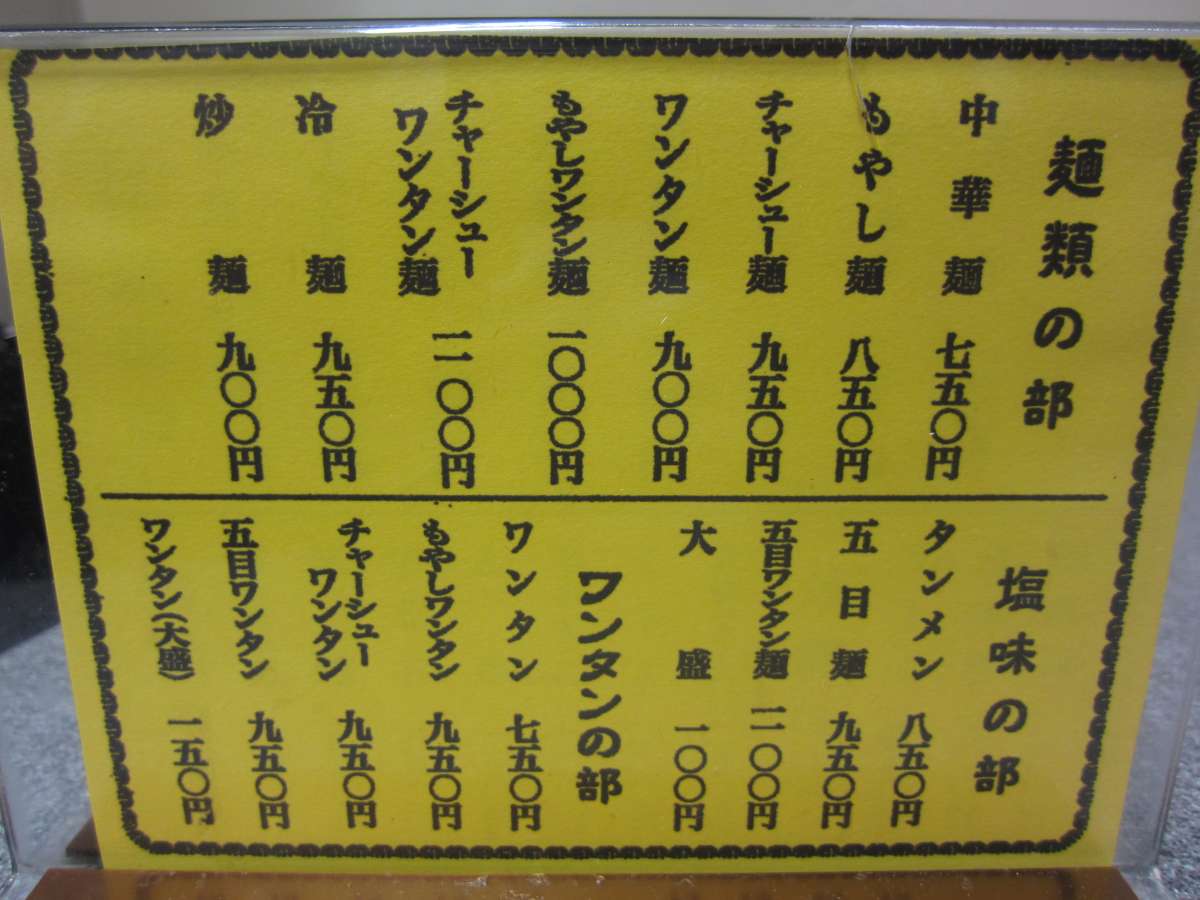 麺類の部
中華麺 七五〇円
もやし麺 八五〇円
チャーシュー麺 九五〇円
ワンタン麺 九〇〇円
もやしワンタン麺 一〇〇〇円
チャーシュー
ワンタン麺 一一〇〇円
冷麺 九五〇円
炒麺 九〇〇円
塩味の部
タンメン 八五〇円
五目麺 九五〇円
五目ワンタン麺 一一〇〇円
大盛 一〇〇円
ワンタンの部
ワンタン 七五〇円
もやしワンタン 九五〇円
チャーシュー
ワンタン 九五〇円
五目ワンタン 九五〇円
ワンタン(大盛) 一五〇円